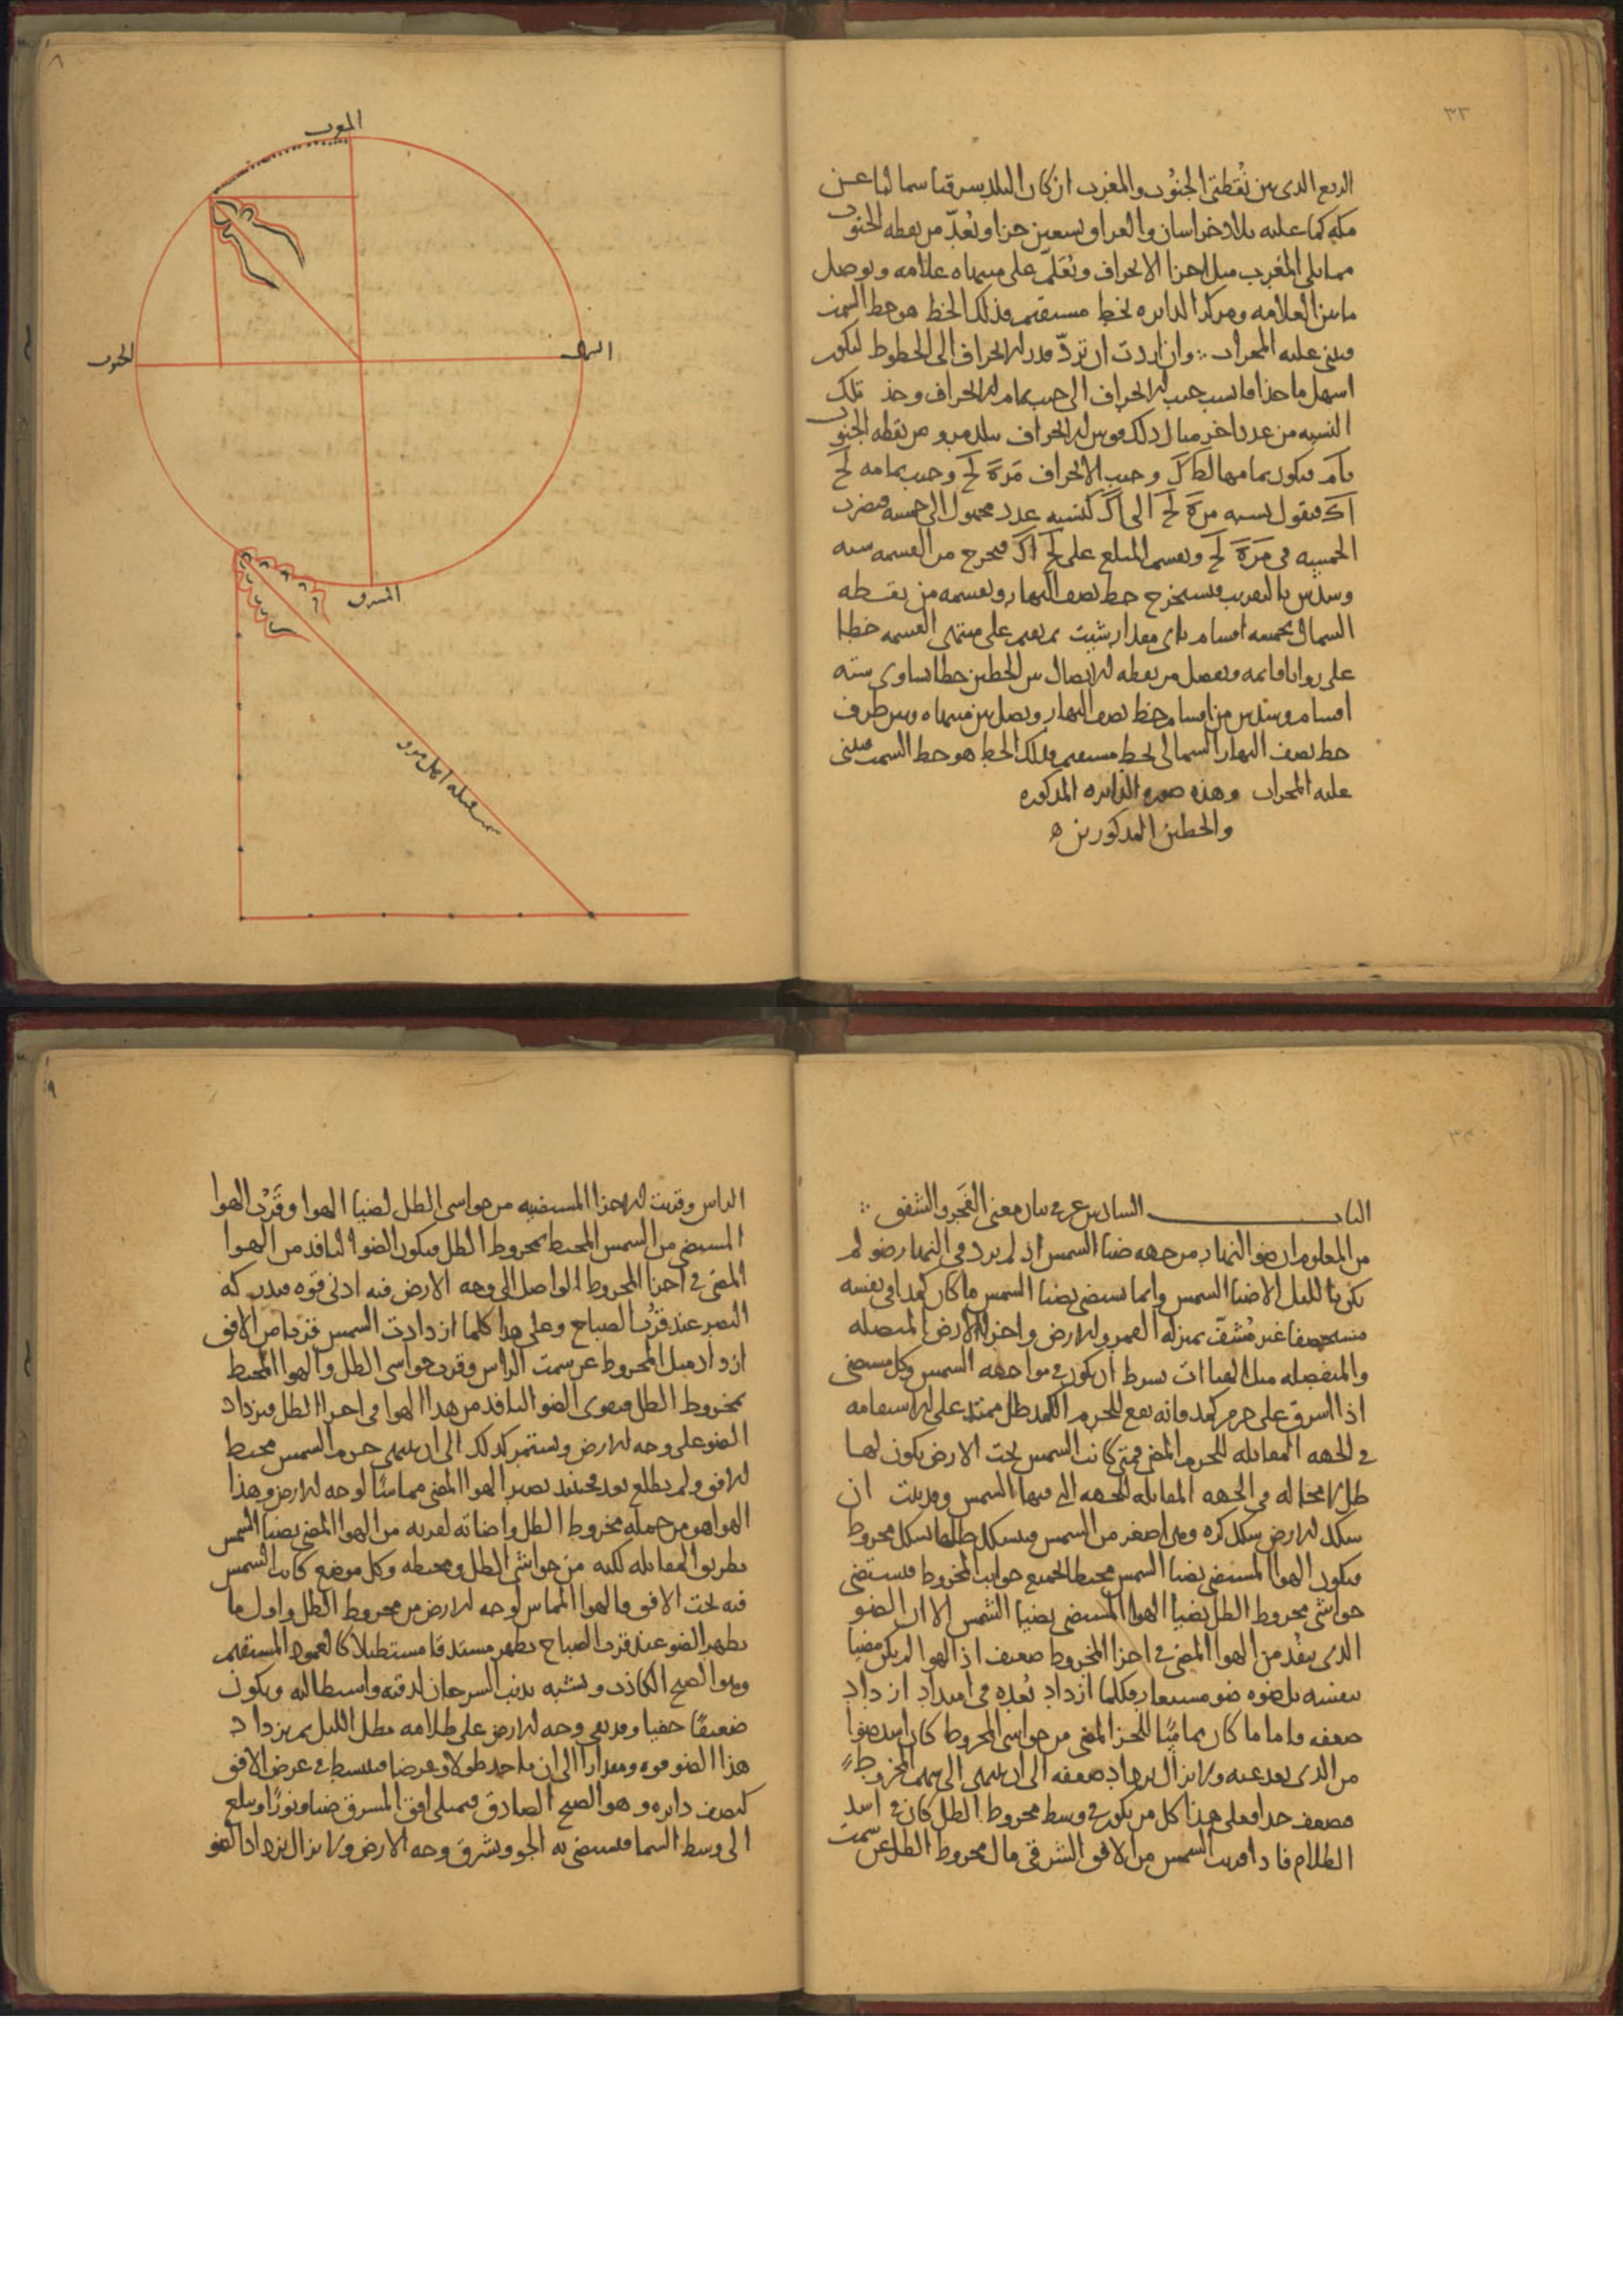 ٣٣
الربع الذى بين نقطتى الجنوب والمغرب ان كان البلد شرقيا شماليا عن
مكة كما عليه بلاد خراسان والعراق بتسعين جزا ونعد من نقطه الجنوب
مما يلى المغرب مثل اجزا الانحراف ونعلم على منتهاه علامه ونوصل
ما بين العلامه ومركز الدايره بخط مستقيم فذلك الخط هو خط السمت
فنبنى عليه المحراب وان اردت ان تردّ قدر الانحراف الى الخطوط ليكون
اسهل ماخذا فانسب جيب الانحراف الى جيب تمام الانحراف وخذ تلك
النسبه من عدد اخر مثال ذلك قوس الانحراف ببلد مرو من نقطه الجنوب
فيكون تمامها وجيب الانحراف وجيب تمامه
فنقول نسبه الى كنسبه عدد مجهول الى خمسه فنضرب
الخمسه فى ونقسم المبلغ على فيخرج من القسمه سته
وسدس بالتقريب فنستخرج خط نصف النهار ونقسمه من نقطه
الشمال بخمسه اقسام باى مقدار شيت ثم نقيم على منتهى القسمه خطا
على زوايا قايمه ونفصل من نقطه الاتصال بين الخطين خطا يساوى سته
اقسام وسدس من اقسام خط نصف النهار ونصل بين منتهاه وبين طرف
خط نصف النهار الشمالى بخط مستقيم فذلك الخط هو خط السمت فنبنى
عليه المحراب وهذه صوره الدايره المذكوره
والخطين المذكورين ه
٨
المغرب
الشمال
الجنوب
المشرق
سمت قبله اهل مرو
٣٤
الباب السادس عشر فى بيان معنى الفجر والشفق
من المعلوم ان ضو النهار من جهه ضيا الشمس اذ لم يزد فى النهار ضو لم
يكن بالليل الا ضيا الشمس وانما يستضى بضيا الشمس ما كان كمدا فى نفسه
مستحصفا غير مُشفّ بمنزله القمر والارض واجزا الارض المتصله
والمنفصله مثل الهباات بشرط ان يكون فى مواجهه الشمس وكل مستضى
اذا اشرق على جرم كمد فانه يقع للجرم الكمد ظل ممتد على الاستقامه
فى الجهه المقابله للجرم المضى فمتى كانت الشمس تحت الارض يكون لها
ظل لا محاله فى الجهه المقابله للجهه التى فيها الشمس وقد ثبت ان
شكل الارض شكل كره وهى اصغر من الشمس فيتشكل ظلها بشكل مخروط
فيكون الهوا المستضى بضيا الشمس محيطا بجميع جوانب المخروط فيستضى
حواشى مخروط الظل بضيا الهوا المستضى بضيا الشمس الا ان الضو
الذى ينفذ من الهوا المضى فى اجزا المخروط ضعيف اذ الهوا لم يكن مضيا
بنفسه بل ضوه ضو مستعار فكلما ازداد بُعده فى امتداد ازداد
ضعفه فاما ما كان مماسّا للجزا المضى من حواشى المخروط كان اشد ضوا
من الذى بعد عنه ولا يزال يزداد ضعفه الى ان ينتهى الى سهم المخروط
فضعف جدا فعلى هذا كل من يكون فى وسط مخروط الظل كان فى اشد
الظلام فاذا قربت الشمس من الافق الشرقى مال مخروط الظل عن سمت
٩
الراس وقربت الاجزا المستضيه من حواشى الظل بضيا الهوا وقرُب الهوا
المستضى من الشمس المحيط بمخروط الظل فيكون الضو النافذ من الهوا
المضى فى اجزا المخروط الواصل الى وجه الارض فيه ادنى قوه فيدركه
البصر عند قرُب الصباح وعلى هذا كلما ازدادت الشمس قربا من الافق
ازداد ميل المخروط عن سمت الراس وقرب حواشى الظل والهوا المحيط
بمخروط الظل فيقوى الضو النافذ من هذا الهوا فى اجزا الظل فيزداد
الضو على وجه الارض ويستمر كذلك الى ان ينتهى جرم الشمس محيط
الافق ولم يطلع بعد فحينيذ يصير الهوا المضى مماسّا لوجه الارض وهذا
الهوا هو من جمله مخروط الظل واضاته لقربه من الهوا المضى بضيا الشمس
بطريق المقابله لكنه من حواشى الظل ومحيطه وكل موضع كانت الشمس
فيه تحت الافق فالهوا المماس لوجه الارض من مخروط الظل واول ما
يظهر الضو عند قرب الصباح يظهر مستدقا مستطيلا كالعمود المستقيم
وهو الصبح الكاذب ويشبه بذنب السرحان لدقته واستطالته ويكون
ضعيفًا خفيا ويبقى وجه الارض على ظلامه بظل الليل ثم يزداد
هذا الضو قوه ومقدارا الى ان ياخذ طولا وعرضا فينبسط فى عرض الافق
كنصف دايره وهو الصبح الصادق فيمتلى افق المشرق ضيا ونورًا ويبلغ
الى وسط السما فيستضى به الجو ويشرق وجه الارض ولا يزال يزداد الضو